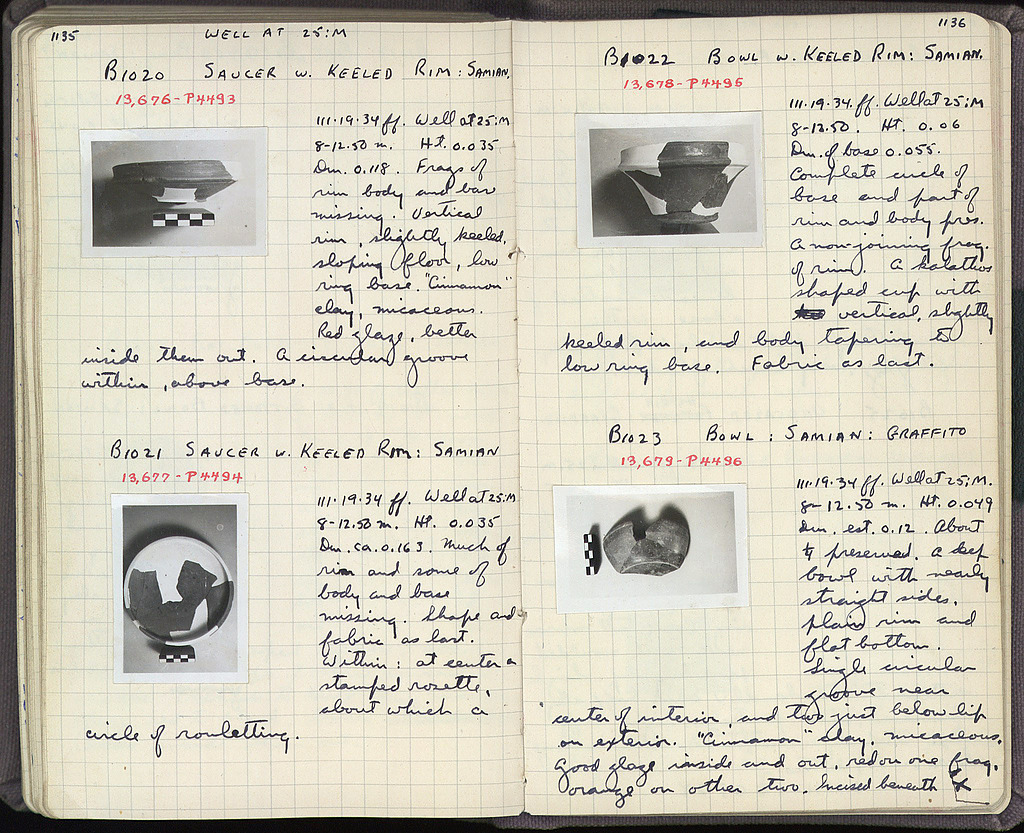 1135 WELL AT 25:M
B1020 SAUCER W. KEELED RIM: SAMIAN.
13,676-P4493
111·19·34 ff. Well at 25:M
8-12.50 m. Ht. 0.035
Dm. 0.118. Frags of
rim body and base
missing. Vertical
rim, slightly keeled,
sloping floor, low
ring base. "Cinnamon"
clay, micaceous.
Red glaze, better
inside then out. A circular groove
within, above base.
B1021 SAUCER W. KEELED RIM: SAMIAN
13,677-P4494
111·19·34 ff. Well at 25:M
8-12.50 m. Ht. 0.035
Dm. ca. 0.163. Much of
rim and some of
body and base
missing. Shape and
fabric as last.
Within: at center a
stamped rosette,
about which a
circle of rouletting.
1136
B1022 BOWL W. KEELED RIM: SAMIAN.
13,678-P4495
111·19·34. ff. Well at 25:M
8-12.50. Ht. 0.06
Dm. of base 0.055.
Complete circle of
base and part of
rim and body pres.
A non-joining frag.
of rim. A kalathos
shaped cup with
vertical, slightly
keeled rim, and body tapering to
low ring base. Fabric as last.
B1023 BOWL: SAMIAN: GRAFFITO
13,679-P4496
111·19·34 ff. Well at 25:M.
8-12.50 m. Ht. 0.049
Dm. est. 0.12. About
preserved. A deep
bowl with nearly
straight sides,
plain rim and
flat bottom.
Single circular
groove near
center of interior, and two just below lip
on exterior. "Cinnamon" clay, micaceous.
Good glaze inside and out, red on one frag.
orange on other two. Incised beneath X